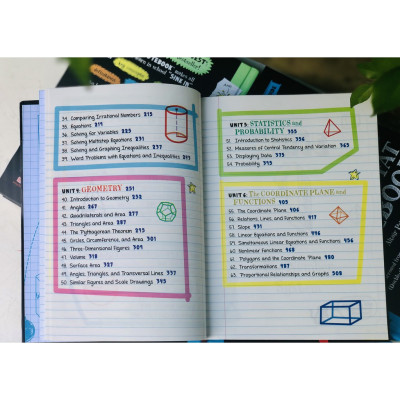 NOTEBOOK
"SINK IN"
34. Comparing Irrational Numbers 213
35. Equations 217
36. Solving for Variables 223
37. Solving Multistep Equations 231
38. Solving and Graphing Inequalities 237
39. Word Problems with Equations and Inequalities
UNIT 4: GEOMETRY 251
40. Introduction to Geometry 252
41. Angles 267
42. Quadrilaterals and Area 277
43. Triangles and Area 287
44. The Pythagorean Theorem 293
45. Circles, Circumference, and Area 301
46. Three-Dimensional Figures 309
47. Volume 318
48. Surface Area 327
49. Angles, Triangles, and Transversal Lines 337
50. Similar Figures and Scale Drawings 345
UNIT 5: STATISTICS and
PROBABILITY 355
51. Introduction to Statistics 356
52. Measures of Central Tendency and Variation 365
53. Displaying Data 375
54. Probability 393
UNIT 6: The COORDINATE PLANE and
FUNCTIONS 405
55. The Coordinate Plane 406
56. Relations, Lines, and Functions 417
57. Slope 431
58. Linear Equations and Functions 446
59. Simultaneous Linear Equations and Functions 456
60. Nonlinear Functions 468
61. Polygons and the Coordinate Plane 480
62. Transformations 487
63. Proportional Relationships and Graphs 508